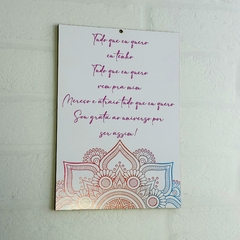 Tudo que eu quero
eu tenho
Tudo que eu quero
vem pra mim
Mereço e atraio tudo que eu quero
Sou grata ao universo por
ser assim!